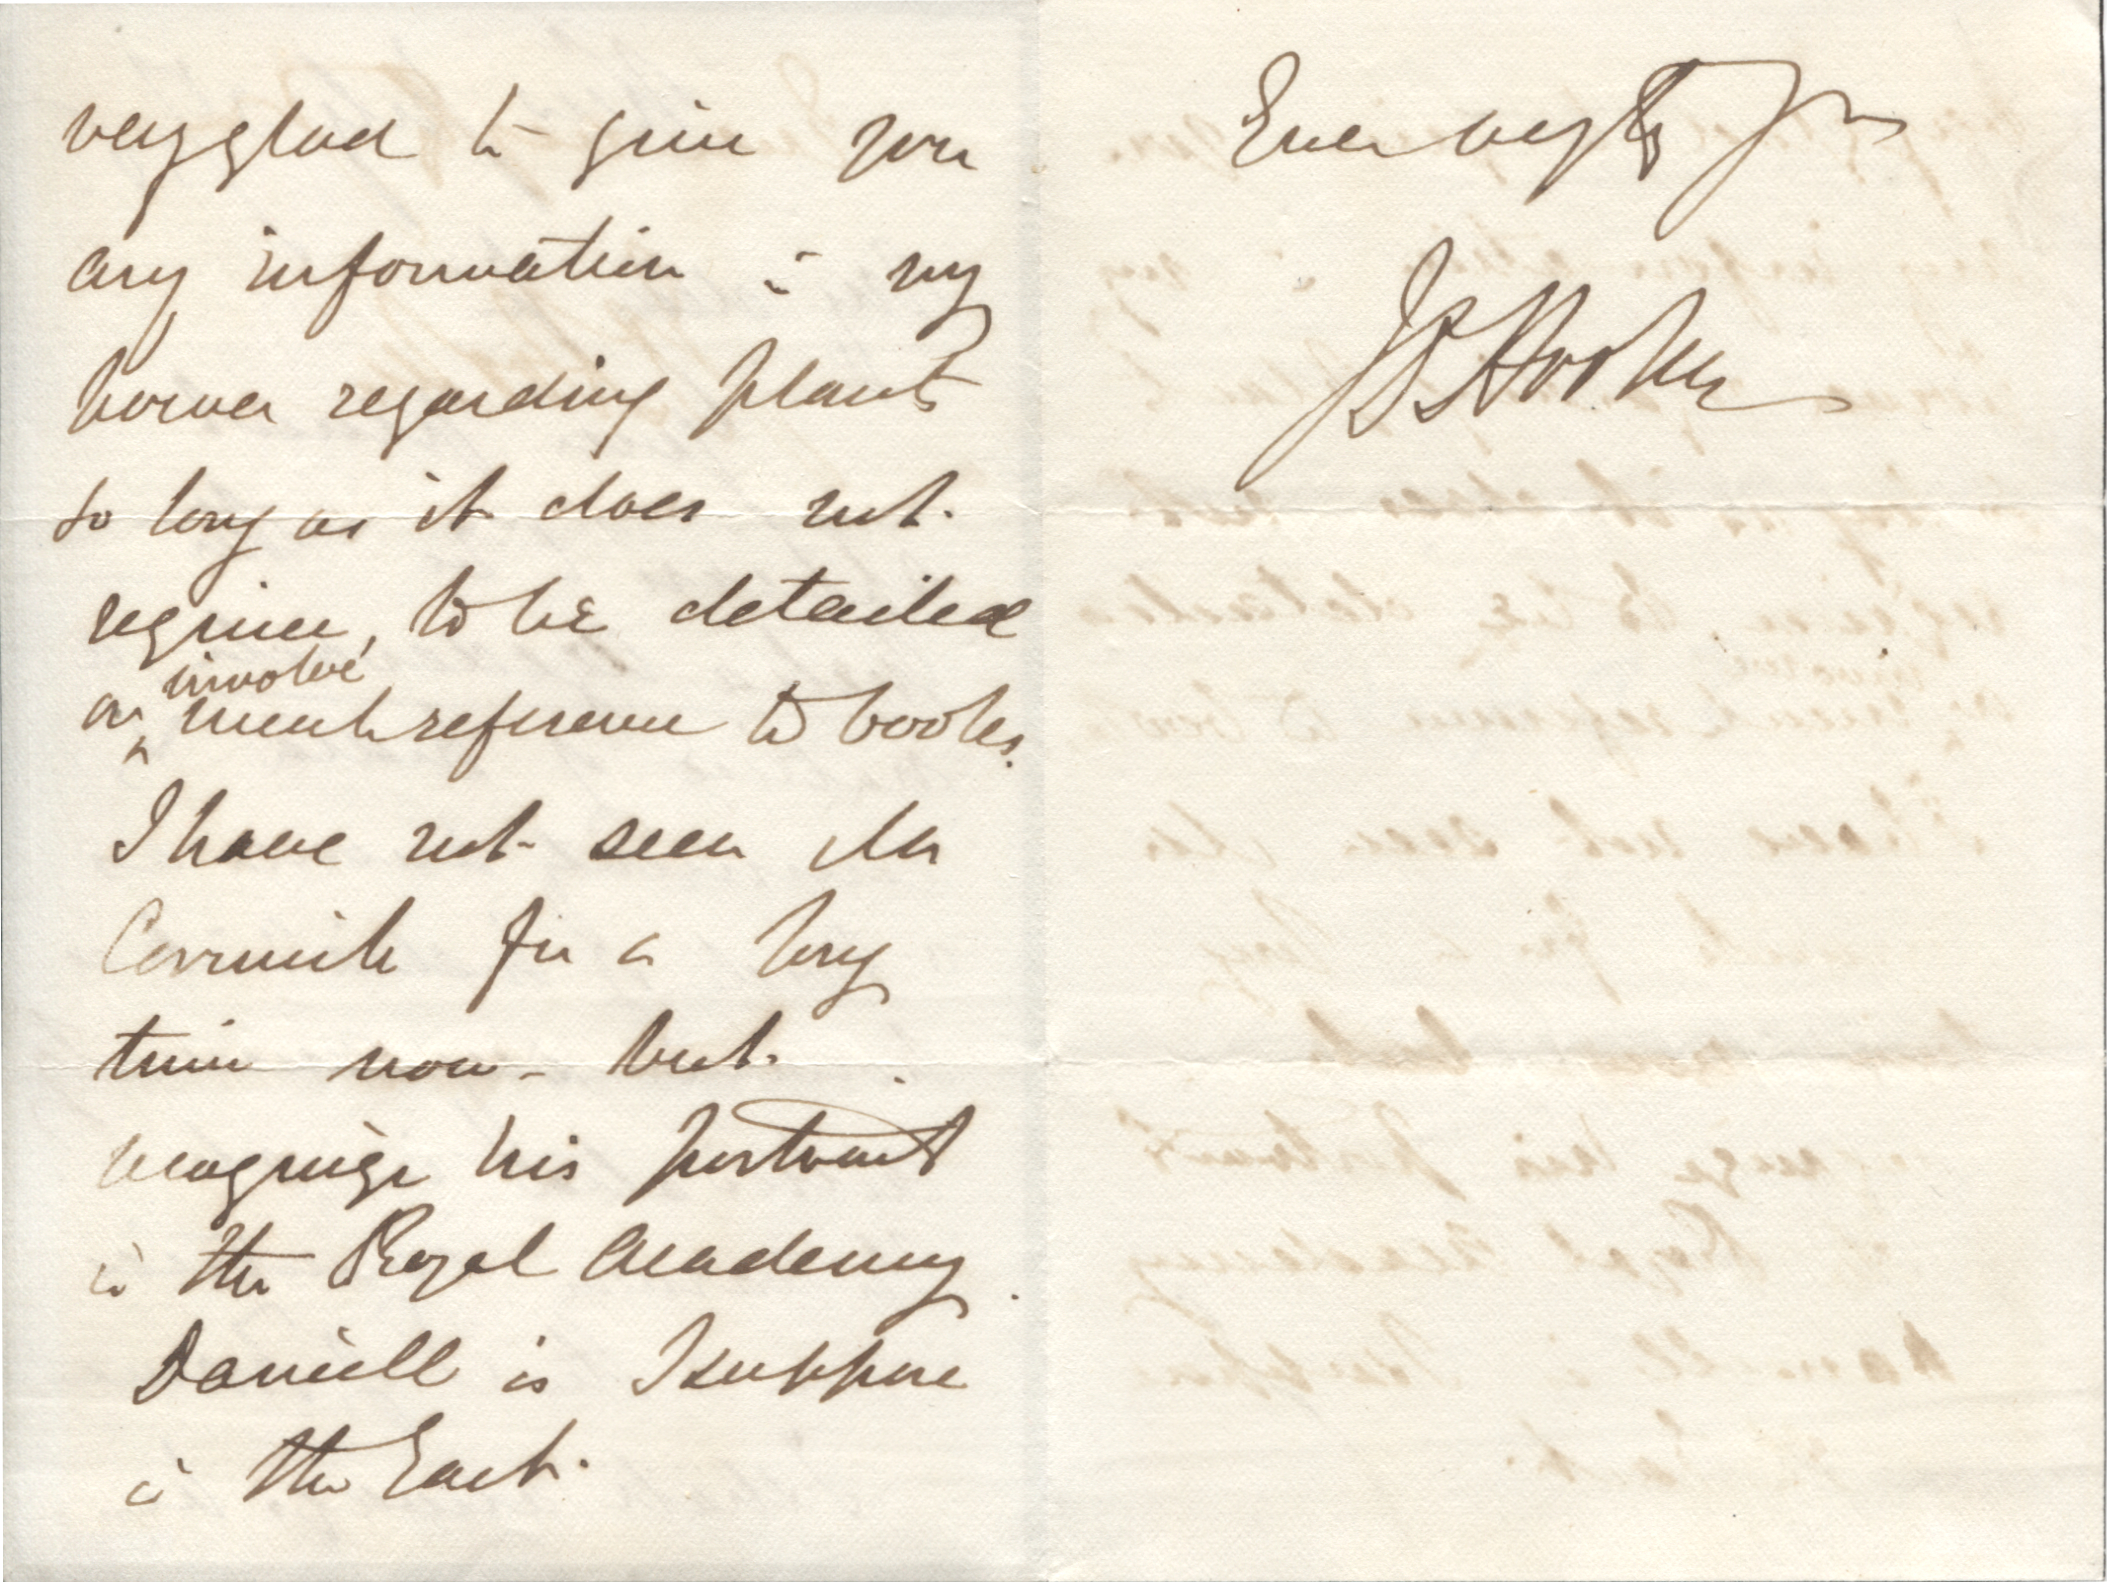 very glad to give you
any information in my
power regarding plants
so long as it does not
require, to be detailed
or involve much reference to books.
I have not seen Mr
Cormick for a long
time now – but
recognize his portrait
in the Royal Academy.
Daniell is I suppose
in the East.
Ever very truly yrs
J D Hooker